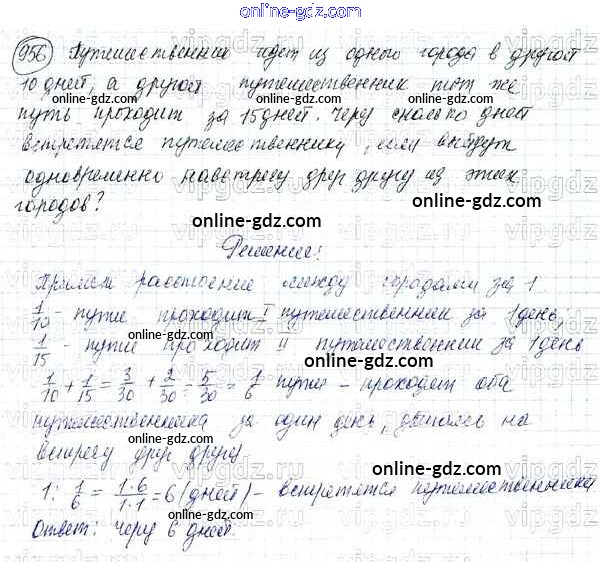 online-gdz.com
956 Путешественник идет из одного города в другой
10 дней, а другой путешественник тот же
путь проходит за 15 дней. Через сколько дней
встретятся путешественники, если выйдут
одновременно навстречу друг другу из этих
городов?
Решение:
Примем расстояние между городами за 1.
1/10 - пути проходит I путешественник за 1 день;
1/15 - пути проходит II путешественник за 1 день
1/10 + 1/15 = 3/30 + 2/30 = 5/30 = 1/6 пути - проходят оба
путешественника за один день, двигаясь на
встречу друг другу.
1 : 1/6 = 1·6/1·1 = 6 (дней) - встретятся путешественники
Ответ: через 6 дней.